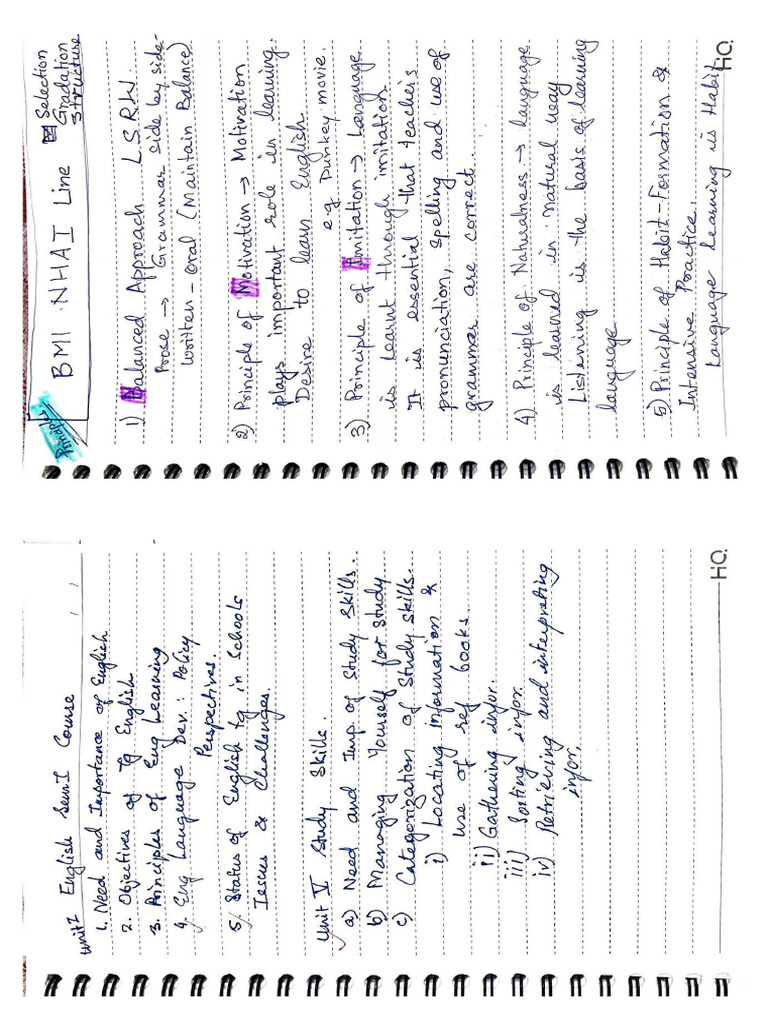 Unit I English Sem I Course
1. Need and Importance of English
2. Objectives of Tg English
3. Principles of Eng Learning
4. Eng Language Dev: Policy
Perspectives.
5. Status of English tg in Schools
Issues & Challenges.
Unit V Study Skills.
a) Need and Imp. of Study Skills.
b) Managing Yourself for Study
c) Categorization of Study Skills.
i) Locating information &
use of ref books.
ii) Gathering infor.
iii) Sorting infor.
iv) Retrieving and interpreting
infor.
HO.
Principles
BMI NHAI Line
Selection
Gradation
Structure
1) Balanced Approach LSRW.
Prose → Grammar side by side
written - oral (Maintain Balance)
2) Principle of Motivation → Motivation
plays important role in learning.
Desire to learn English
e.g Dunkey movie.
3) Principle of Imitation → Language
is learnt through imitation
It is essential that teachers
pronunciation, spelling and use of
grammar are correct.
4) Principle of Naturalness → language
is learned in natural way
Listening is the basis of learning
language
5) Principle of Habit-Formation &
Intensive Practice.
Language learning is Habit
HO.